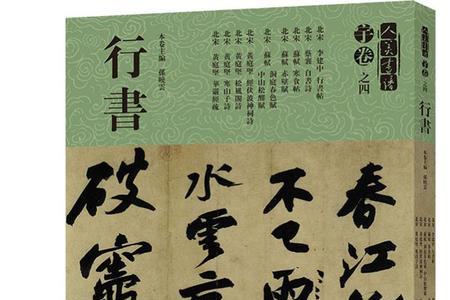 人美書譜
羊卷之四
北宋 李建中 行書帖
北宋 蔡襄 自書詩
北宋 蘇軾 寒食帖
北宋 蘇軾 赤壁賦
北宋 蘇軾 洞庭春色賦
中山松醪賦
北宋 黃庭堅 經伏波神祠詩
北宋 黃庭堅 松風閣詩
北宋 黃庭堅 寒山子詩
北宋 黃庭堅 華嚴經疏
本卷主編 孫曉雲
行書
春江
不已雨
水雲
破竈
人美書譜 羊卷 之四 行書 本卷主編 孫曉雲